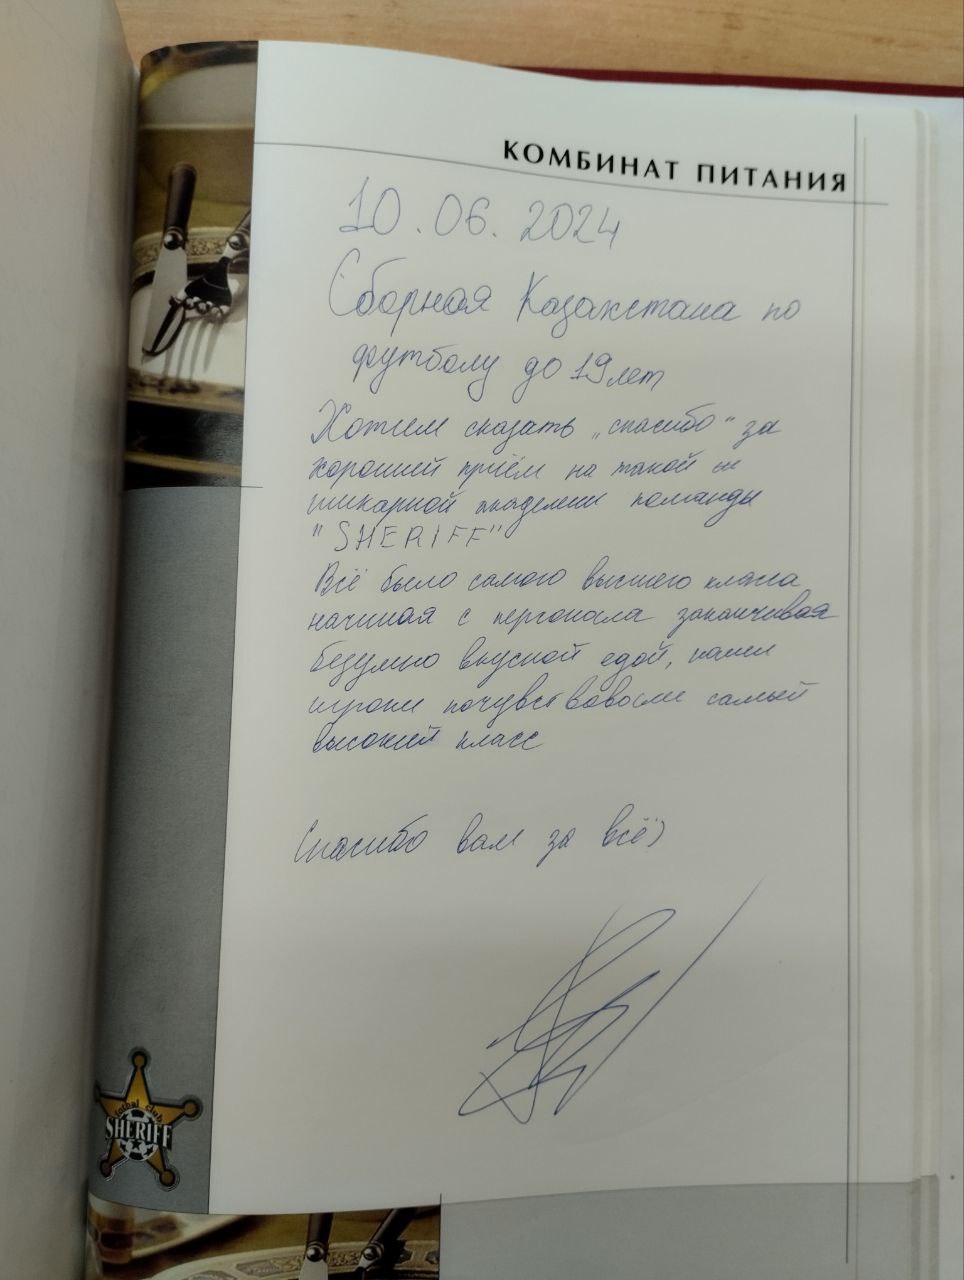 КОМБИНАТ ПИТАНИЯ
10.06.2024
Сборная Казахстана по
футболу до 19 лет
Хотим сказать „спасибо“ за
хороший приём на такой
шикарной академии команды
"SHERIFF"
Всё было самого высшего класса
начиная с персонала заканчивая
безумно вкусной едой, наши
игроки почувствовали самый
высокий класс
Спасибо вам за всё)
fotbal club
SHERIFF